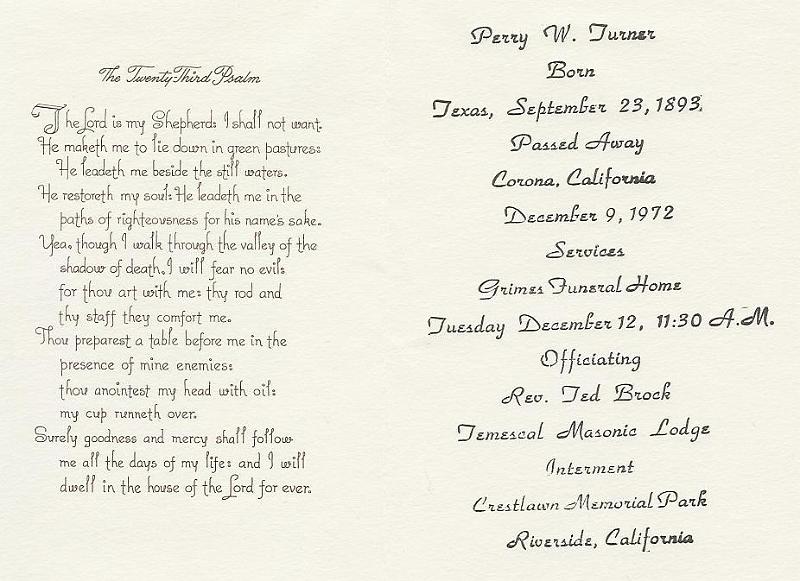 The Twenty-Third Psalm
The Lord is my Shepherd: I shall not want.
He maketh me to lie down in green pastures:
He leadeth me beside the still waters.
He restoreth my soul: He leadeth me in the
paths of righteousness for his name's sake.
Yea, though I walk through the valley of the
shadow of death, I will fear no evil:
for thou art with me: thy rod and
thy staff they comfort me.
Thou preparest a table before me in the
presence of mine enemies:
thou anointest my head with oil:
my cup runneth over.
Surely goodness and mercy shall follow
me all the days of my life: and I will
dwell in the house of the Lord for ever.
Perry W. Turner
Born
Texas, September 23, 1893.
Passed Away
Corona, California
December 9, 1972
Services
Grimes Funeral Home
Tuesday December 12, 11:30 A.M.
Officiating
Rev. Ted Brock
Temescal Masonic Lodge
Interment
Crestlawn Memorial Park
Riverside, California